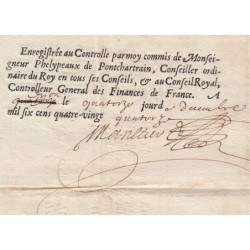 Enregistrée au Controlle par moy commis de Monsei-
gneur Phelypeaux de Pontchartrain, Conseiller ordi-
naire du Roy en tous ses Conseils, & au Conseil Royal,
Controlleur General des Finances de France. A
le quatorze jour de decembre
mil six cens quatre-vingt quatorze